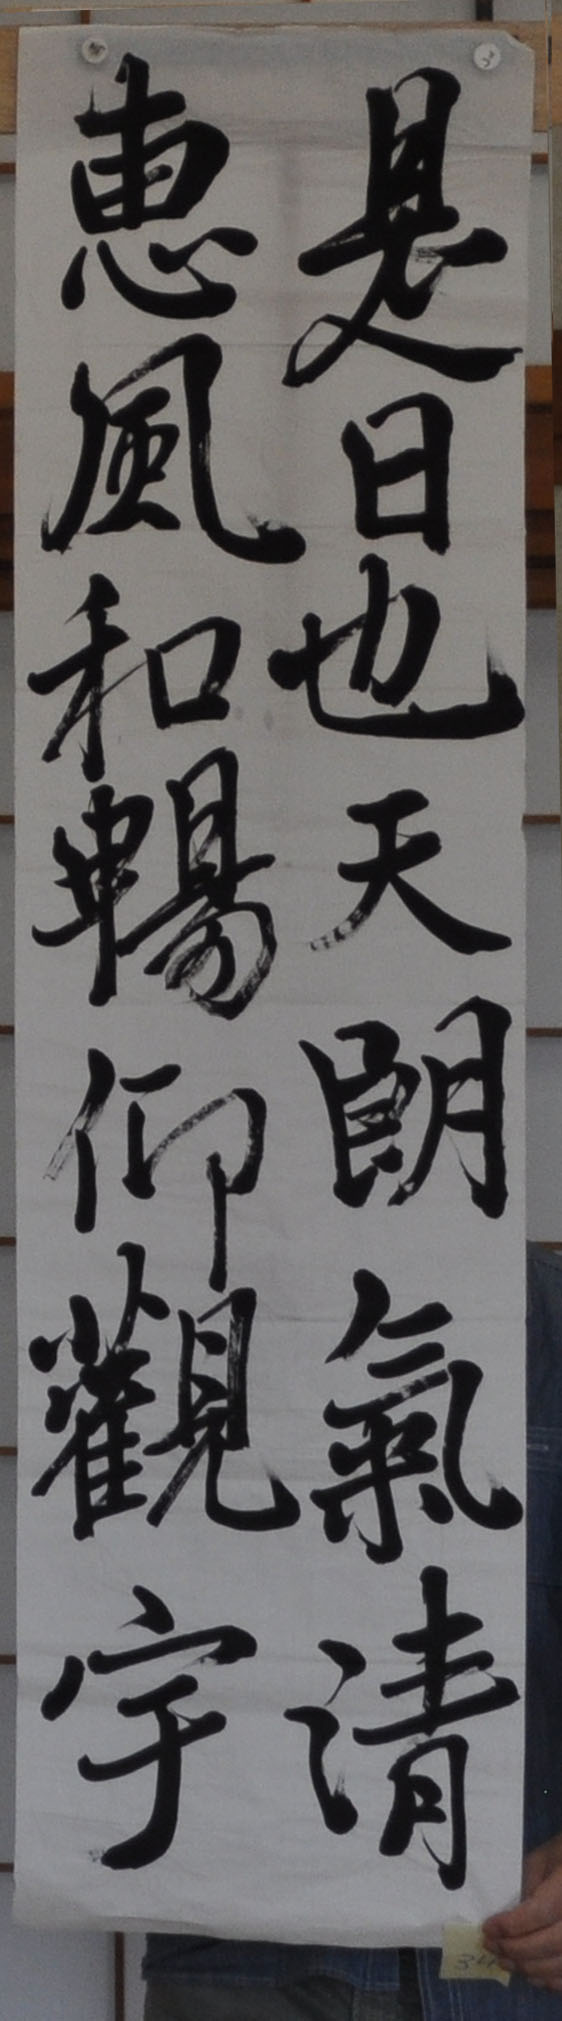 是日也天朗氣清
恵風和暢仰觀宇
34